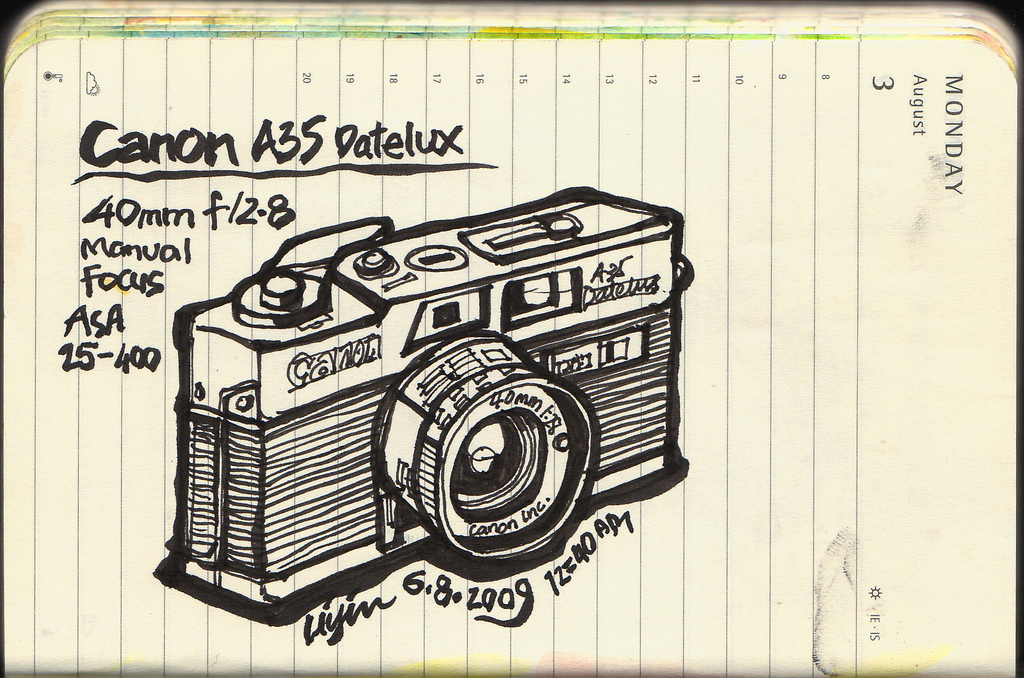 MONDAY
August
3
8
9
10
11
12
13
14
15
16
17
18
19
20
IE · IS
Canon A35 Datelux
40mm f/2.8
Manual
Focus
ASA
25-400
A35
Datelux
Canon
40mm f:2.8
Canon inc.
6.8.2009
12:40AM